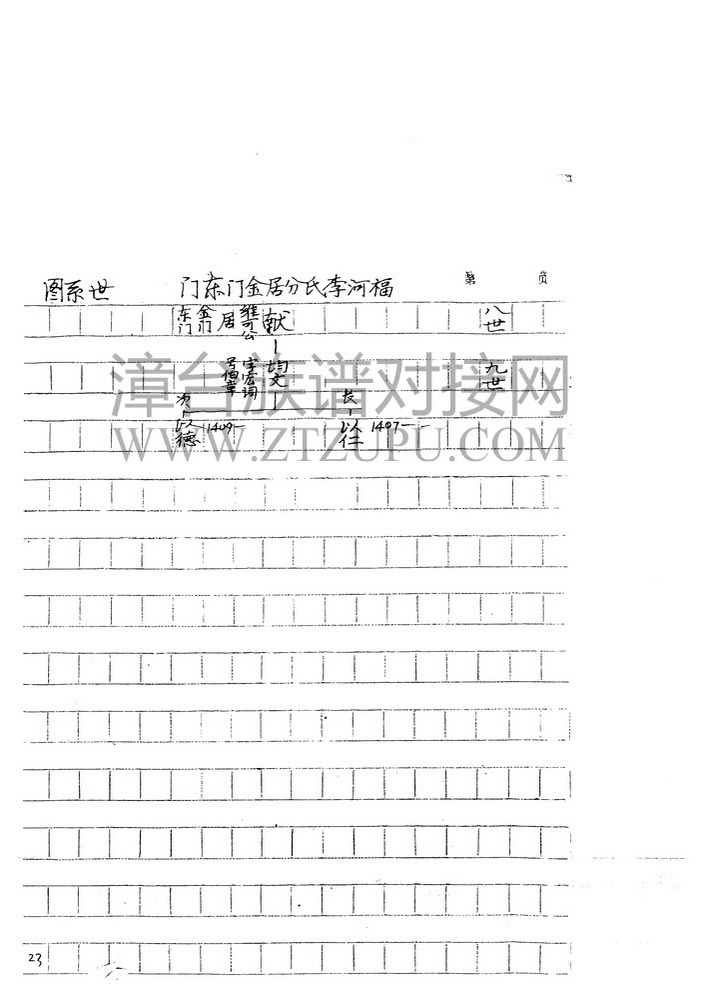 第 页
福河李氏分居金门东门 世系图
八世 献 维可公 居金门东门
九世 均文 字宏词 号伯章
长 次
以仁 1407— 以德 1409—
漳台族谱对接网
WWW.ZTZUPU.COM
23